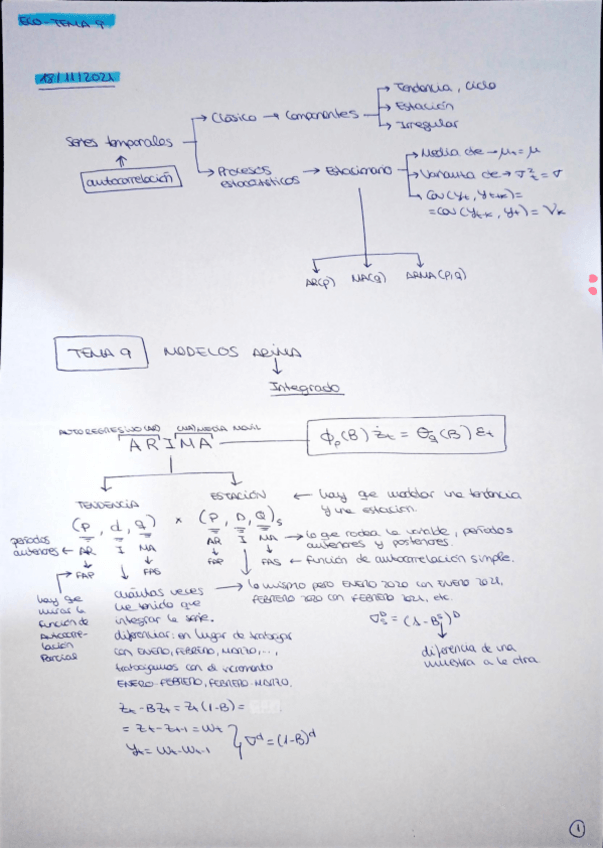 ECO - TEMA 9
18/11/2021
Series temporales
autocorrelación
Clásico → Componentes
Tendencia, ciclo
Estación
Irregular
Procesos estocásticos → Estacionario
Media cte → μt = μ
Varianza cte → σ²t = σ
Cov(yt, yt+k) =
= Cov(yt-k, yt) = γk
AR(p) MA(q) ARMA(p,q)
TEMA 9 MODELOS ARIMA
Integrado
AUTOREGRESIVO(AR) (MA)MEDIA MÓVIL
ARIMA
ϕp(B) żt = θq(B) εt
TENDENCIA
ESTACIÓN ← hay que modelar una tendencia
y una estación.
(p, d, q) × (P, D, Q)s
períodos anteriores ← AR I MA
AR I MA → lo que rodea la variable, períodos
anteriores y posteriores.
FAP FAS
FAP FAS ← función de autocorrelación simple.
hay que
mirar la
función de
Autocorre-
lación
Parcial
cuántas veces
he tenido que
integrar la serie.
diferenciar: en lugar de trabajar
con ENERO, FEBRERO, MARZO,...,
trabajamos con el incremento
ENERO-FEBRERO, FEBRERO-MARZO.
→ lo mismo pero ENERO 2020 con ENERO 2021,
FEBRERO 2020 con FEBRERO 2021, etc.
∇ᴰs = (1-Bˢ)ᴰ
diferencia de una
muestra a la otra
zt - Bzt = zt(1-B) =
= zt - zt-1 = wt
yt = wt - wt-1
∇ᵈ = (1-B)ᵈ
1